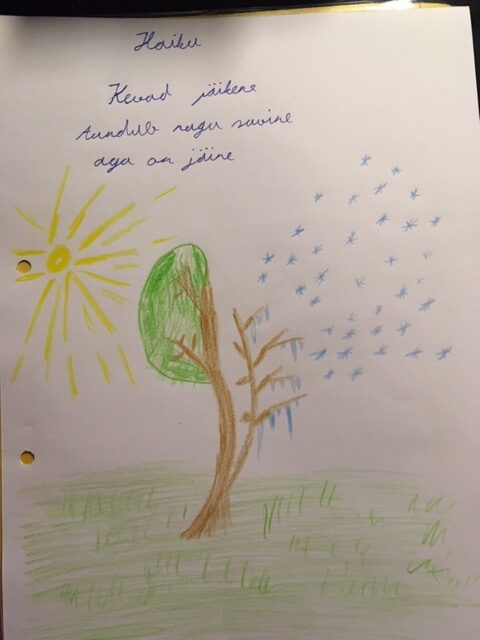 Haiku
Kevad jäikene
tundub nagu suvine
aga on jäine